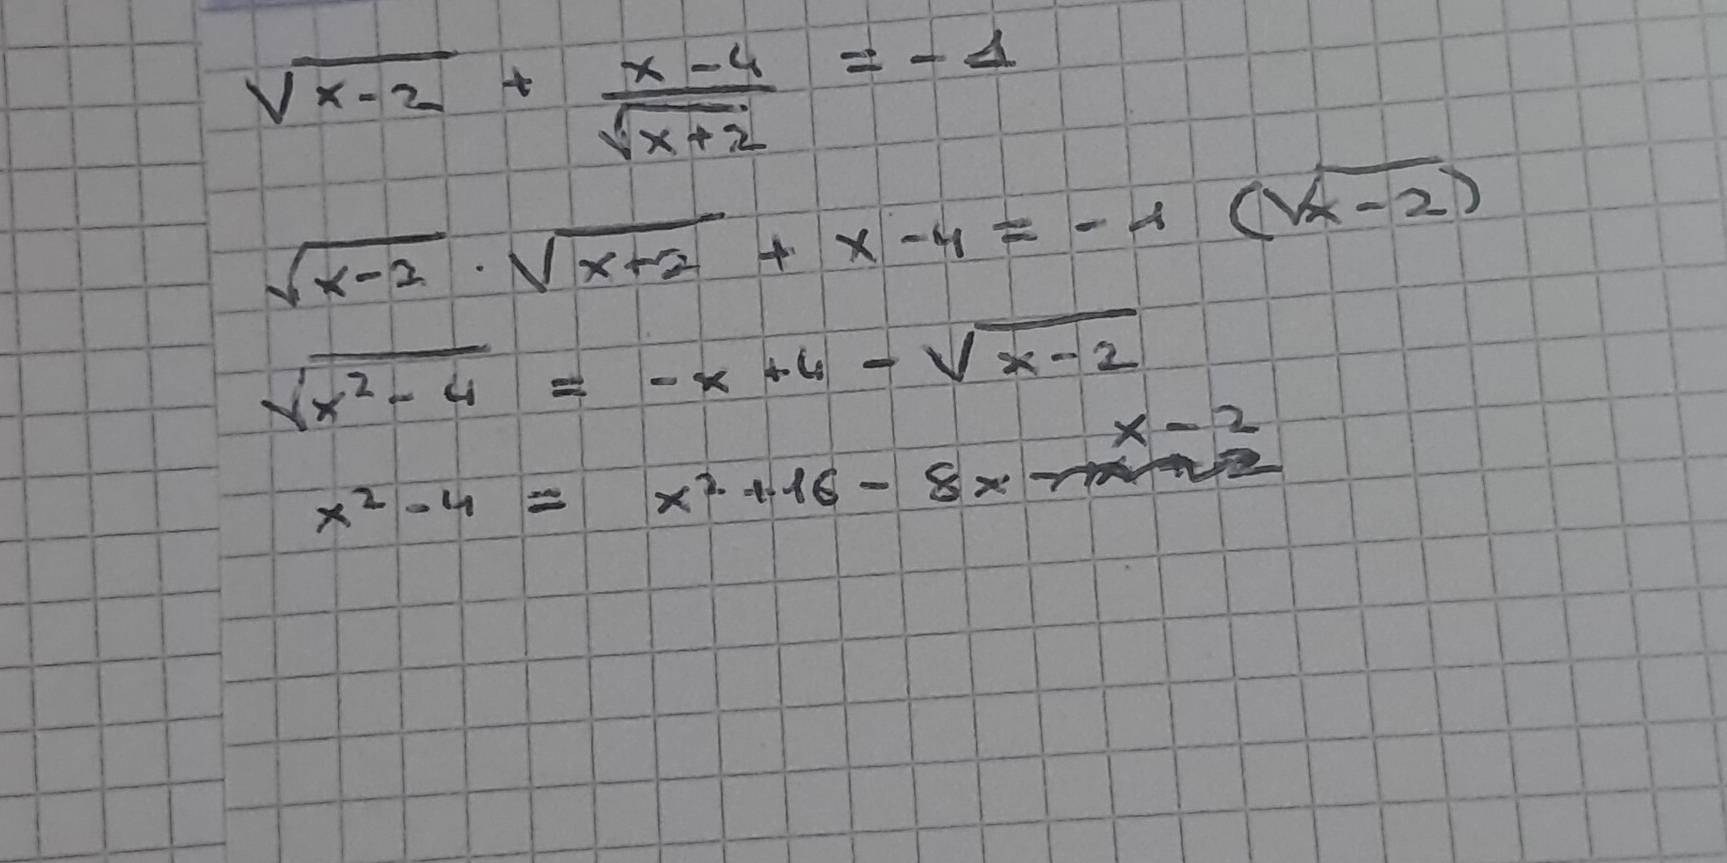 √(x-2) + (x-4)/√(x+2) = -1
√(x-2) · √(x+2) + x-4 = -1 (√(x-2))
√(x²-4) = -x+4-√(x-2)
x²-4 = x²+16-8x x-2